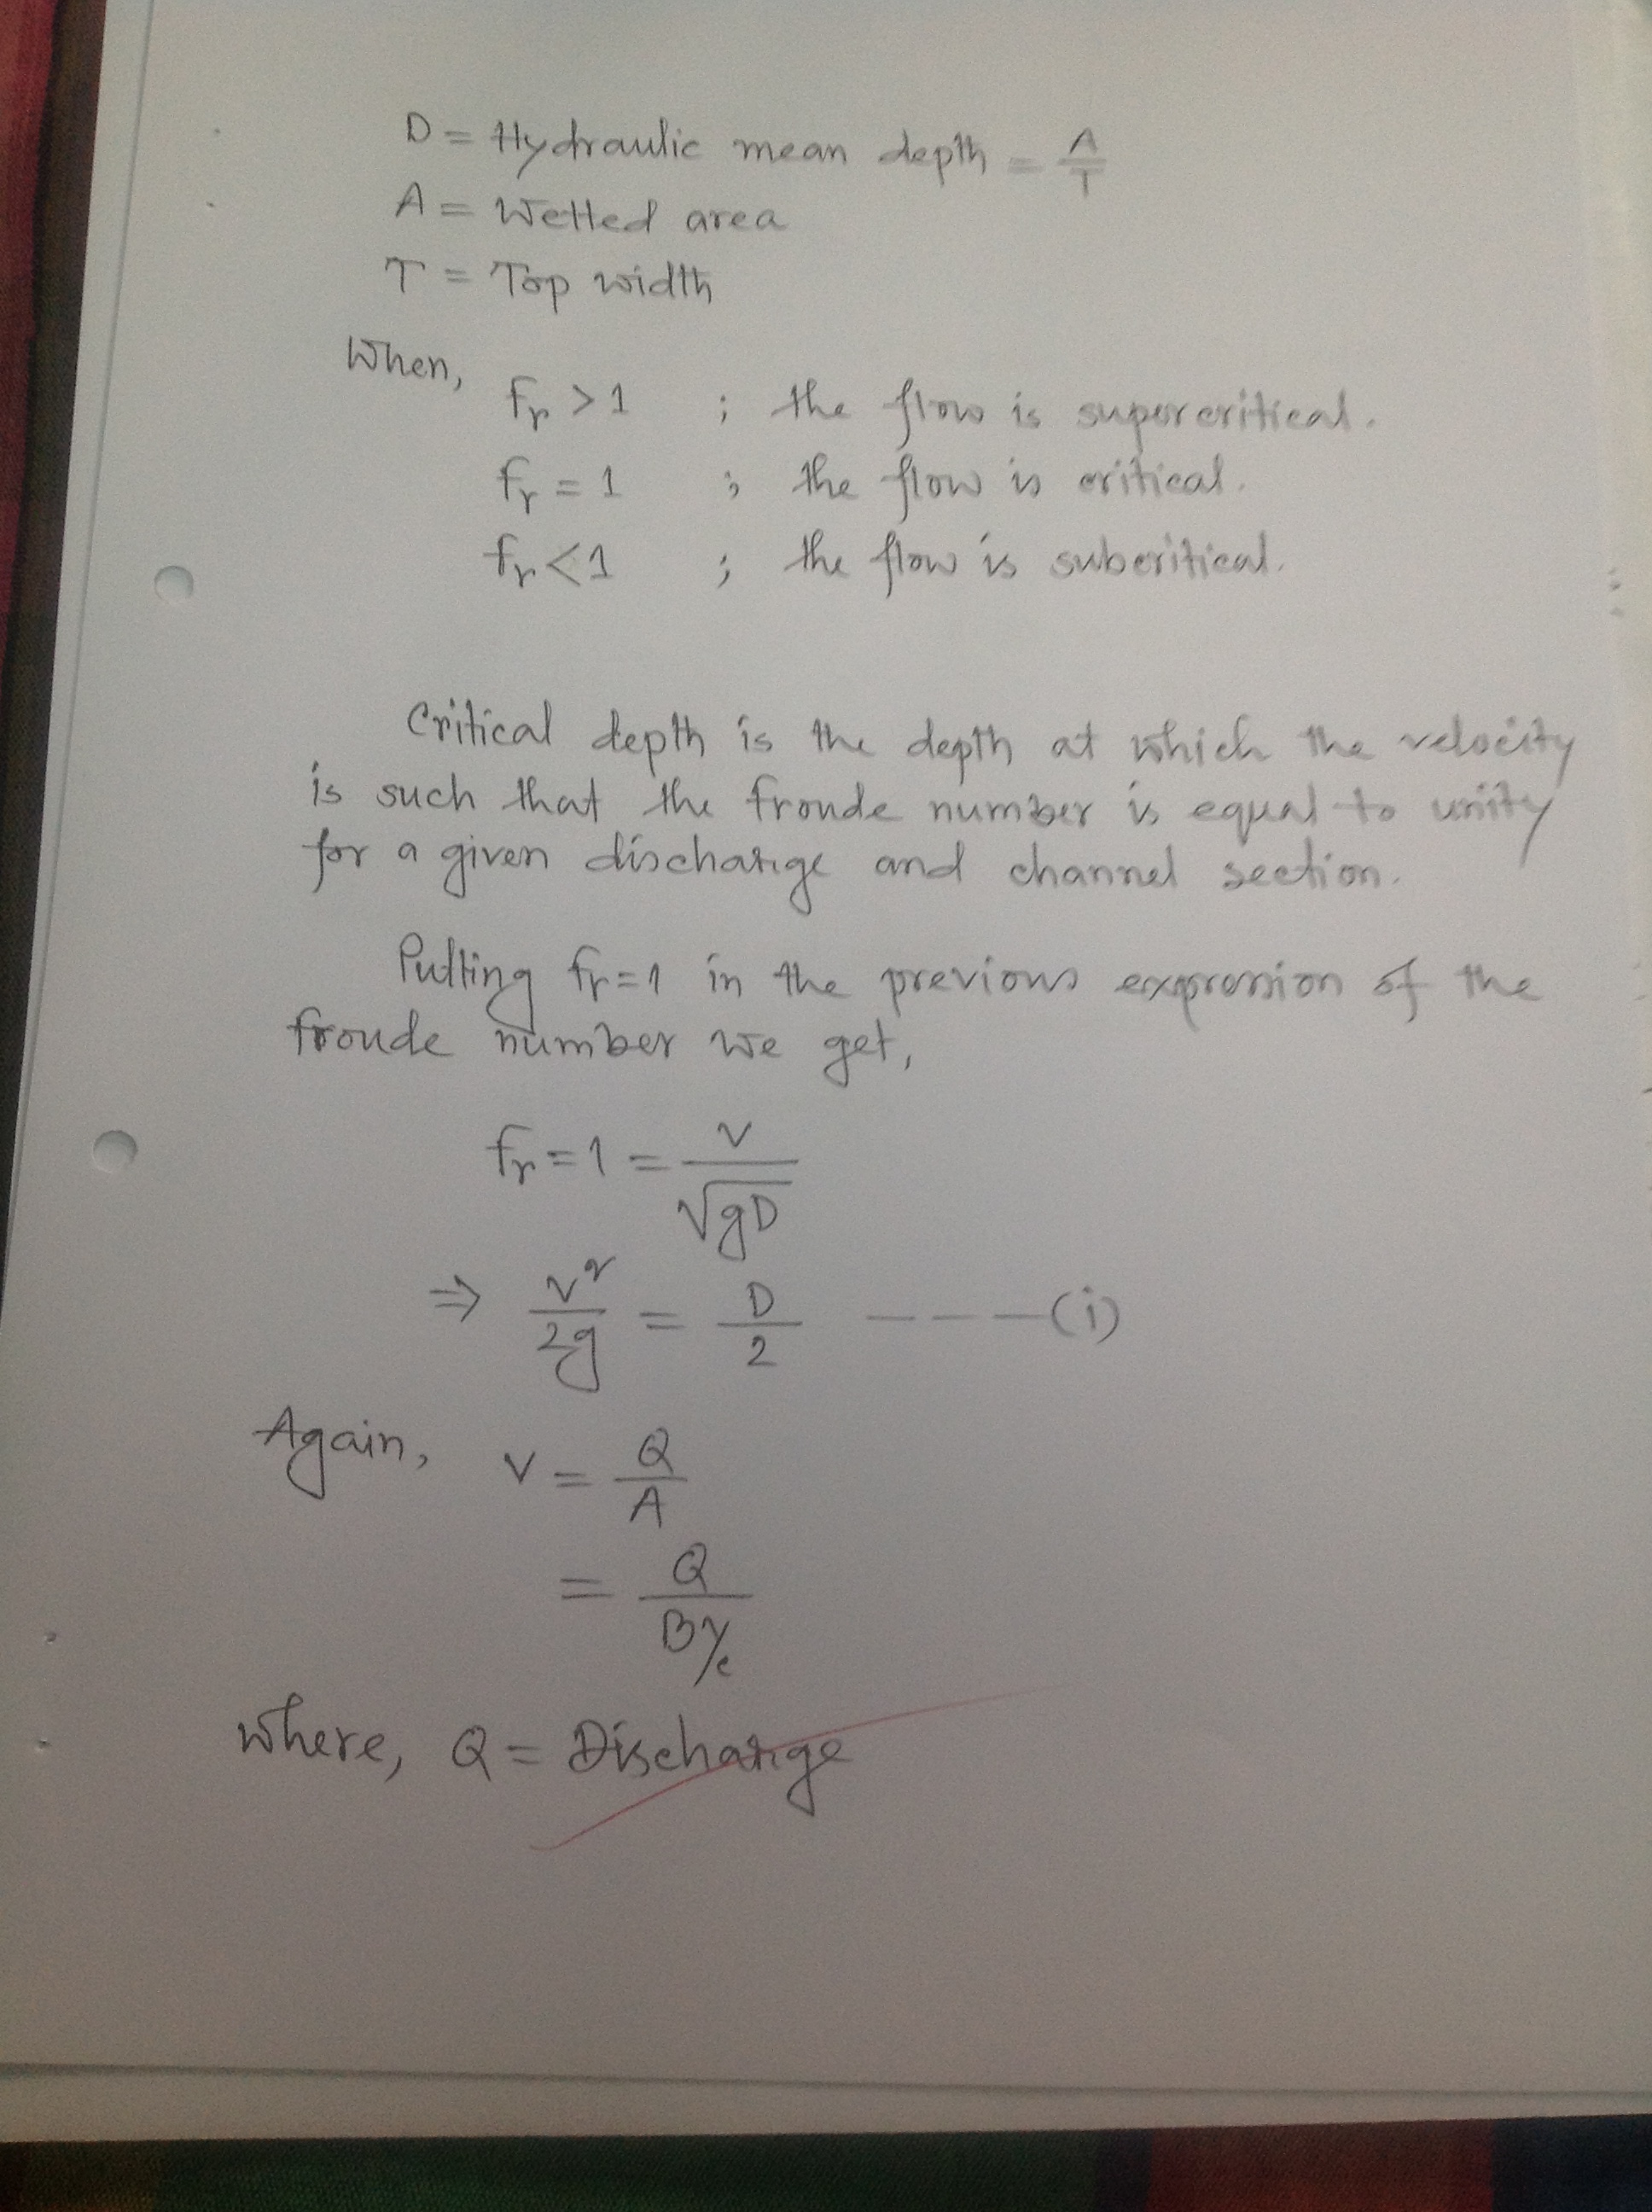 D = Hydraulic mean depth = A/T
A = Wetted area
T = Top width
When,
fr > 1 ; the flow is supercritical.
fr = 1 ; the flow is critical.
fr < 1 ; the flow is subcritical.
Critical depth is the depth at which the velocity
is such that the froude number is equal to unity
for a given discharge and channel section.
Putting fr=1 in the previous expression of the
froude number we get,
fr = 1 = V/√gD
⇒ V²/2g = D/2 ----(i)
Again, V = Q/A
= Q/Byc
Where, Q = Discharge